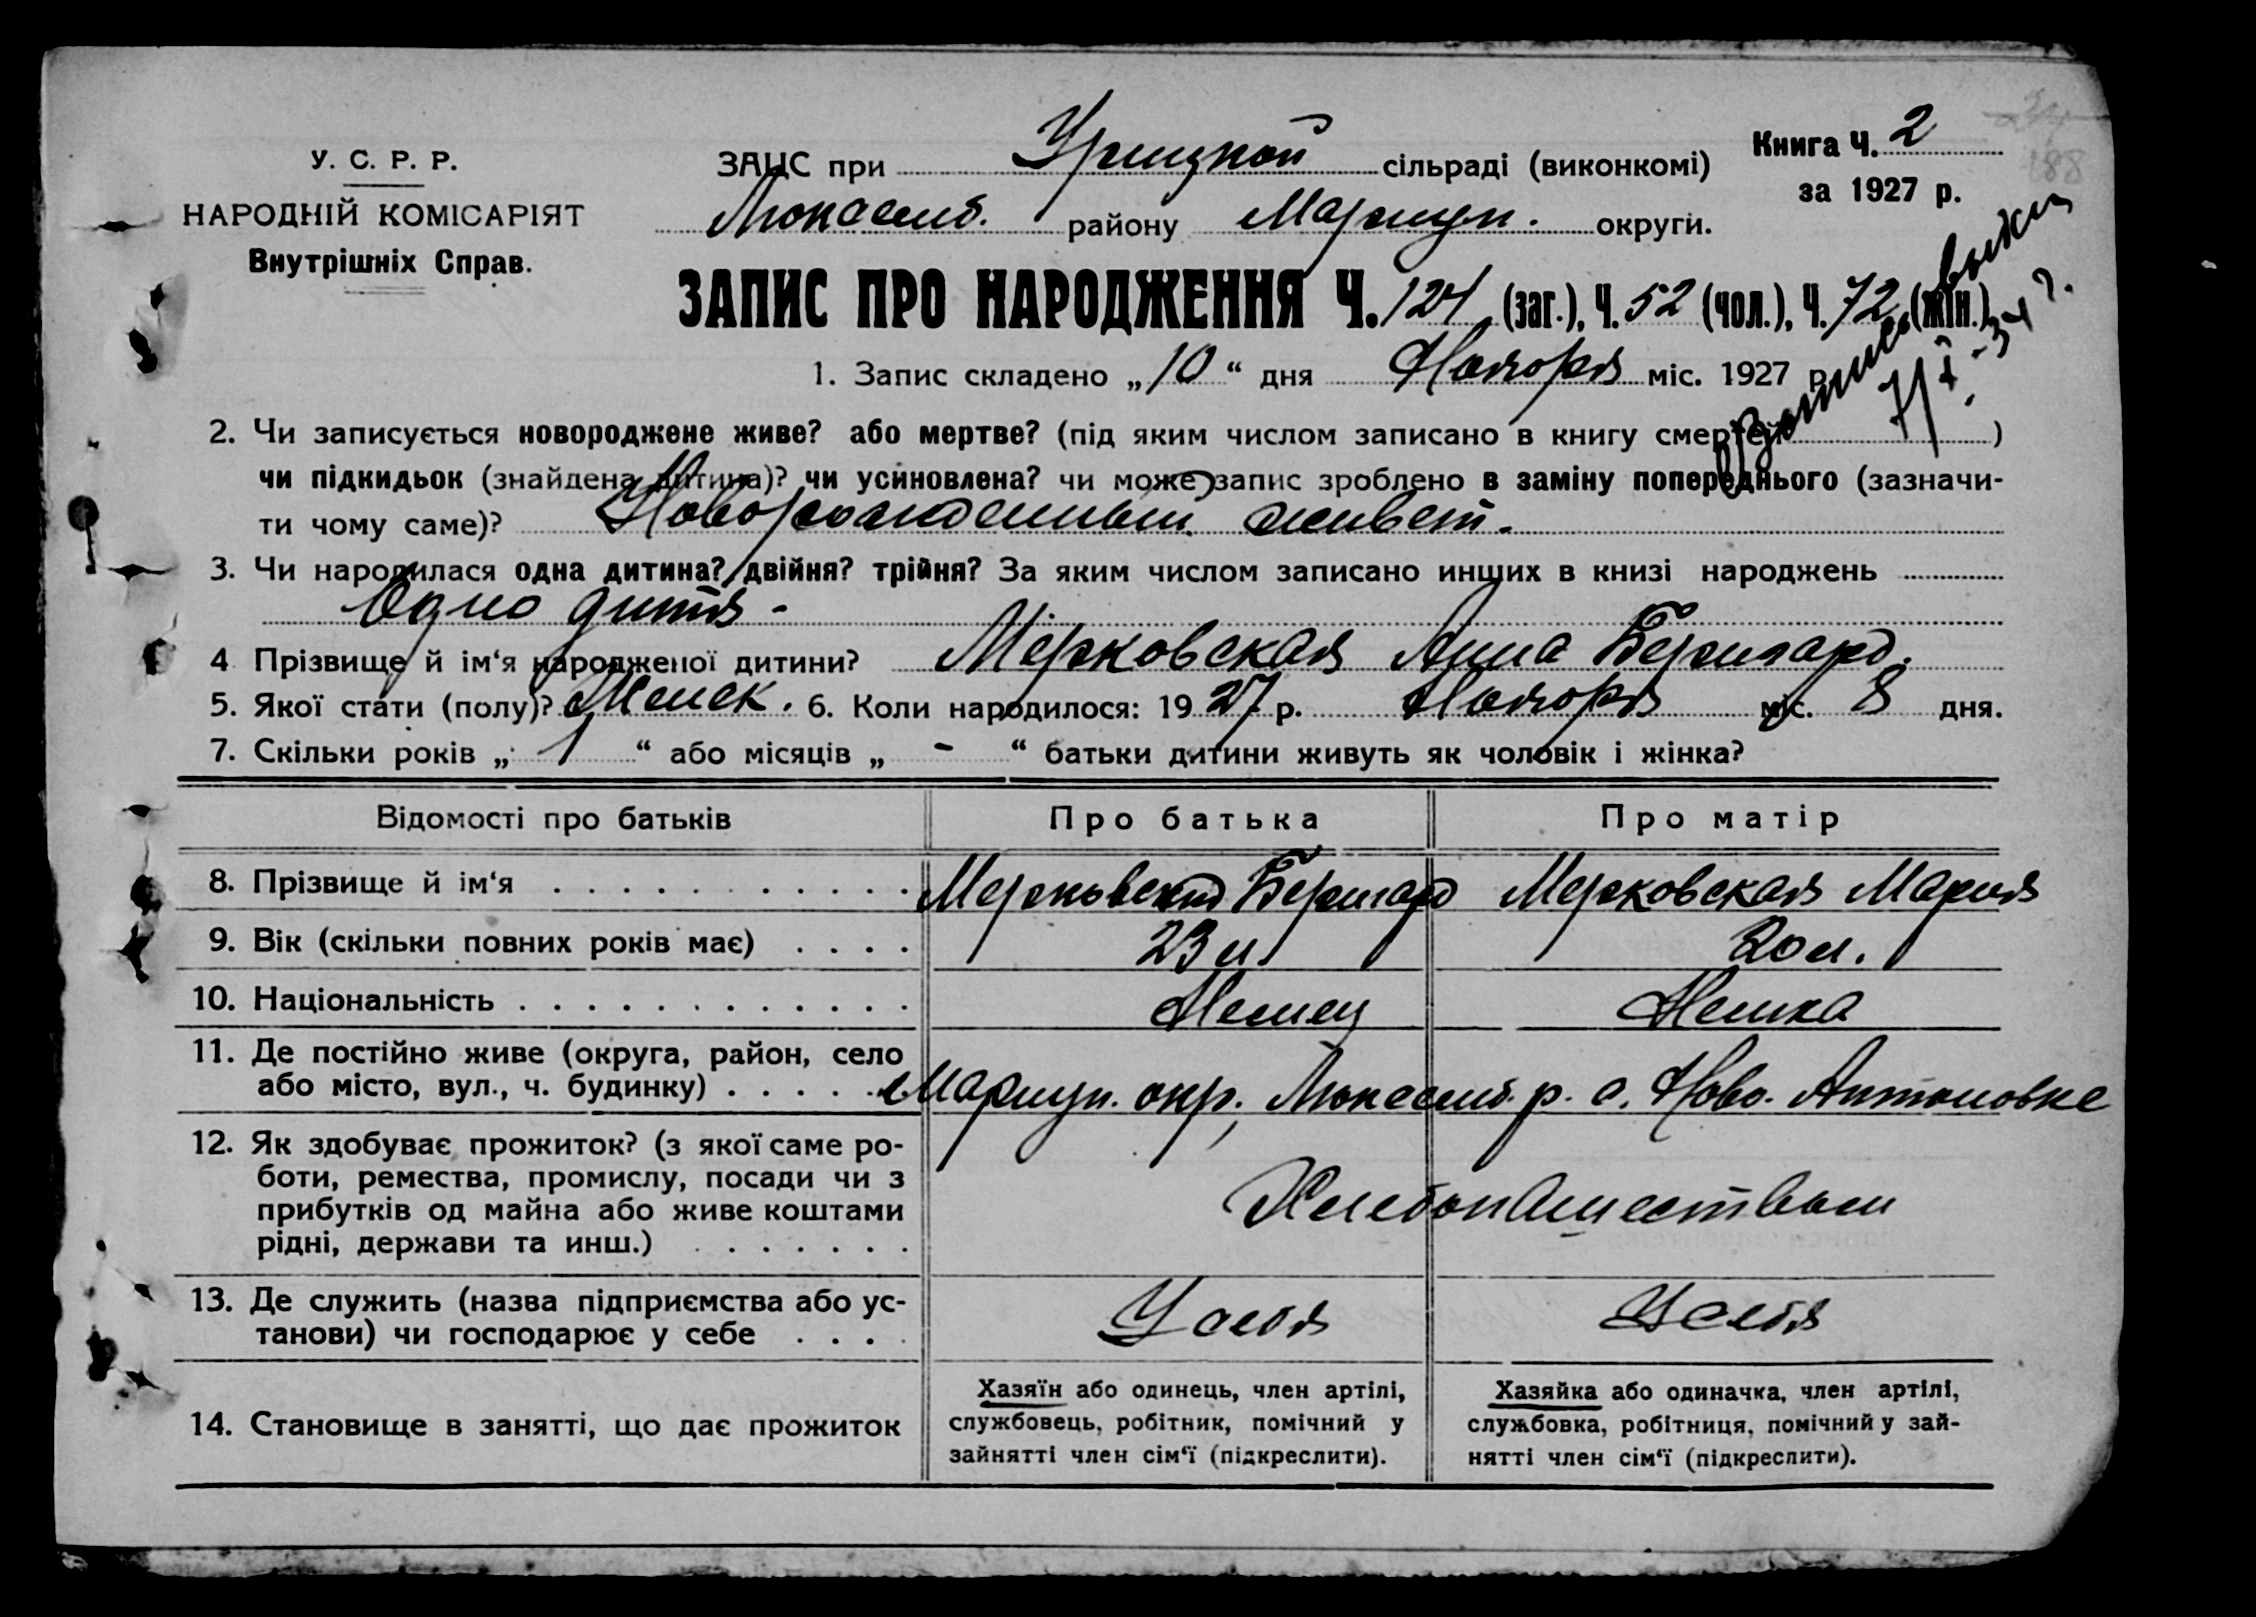 У. С. Р. Р.
НАРОДНІЙ КОМІСАРІЯТ
Внутрішніх Справ.
ЗАЦС при Урицкой сільраді (виконкомі)
Люксемб. району Мариуп. округи.
Книга Ч. 2
за 1927 р.
188
ЗАПИС ПРО НАРОДЖЕННЯ Ч. 124 (заг.), Ч. 52 (чол.), Ч. 72 (жін.)
1. Запис складено „10“ дня Ноября міс. 1927 р.
2. Чи записується новороджене живе? або мертве? (під яким числом записано в книгу смертей )
чи підкидьок (знайдена дитина)? чи усиновлена? чи може запис зроблено в заміну попереднього (зазначи-
ти чому саме)? Новорожденный живет.
3. Чи народилася одна дитина? двійня? трійня? За яким числом записано инших в книзі народжень
Одно дитя -
4 Прізвище й ім‘я народженої дитини? Мерковская Анна Бернгард.
5. Якої стати (полу)? Женск. 6. Коли народилося: 1927 р. Ноября міс. 8 дня.
7. Скільки років „ 1 “ або місяців „ - “ батьки дитини живуть як чоловік і жінка?
Відомості про батьків Про батька Про матір
8. Прізвище й ім‘я Мерковский Бернгард Мерковская Мария
9. Вік (скільки повних років має) 23 л. 20 л.
10. Національність Немец Немка
11. Де постійно живе (округа, район, село
або місто, вул., ч. будинку) Мариуп. окр., Люксемб. р. с. Ново-Антоновке
12. Як здобуває прожиток? (з якої саме ро-
боти, ремества, промислу, посади чи з
прибутків од майна або живе коштами
рідні, держави та инш.)
Хлебопашеством
13. Де служить (назва підприємства або ус-
танови) чи господарює у себе У себя У себя
14. Становище в занятті, що дає прожиток
Хазяїн або одинець, член артілі,
службовець, робітник, помічний у
зайнятті член сім‘ї (підкреслити).
Хазяйка або одиначка, член артілі,
службовка, робітниця, помічний у зай-
нятті член сім‘ї (підкреслити).